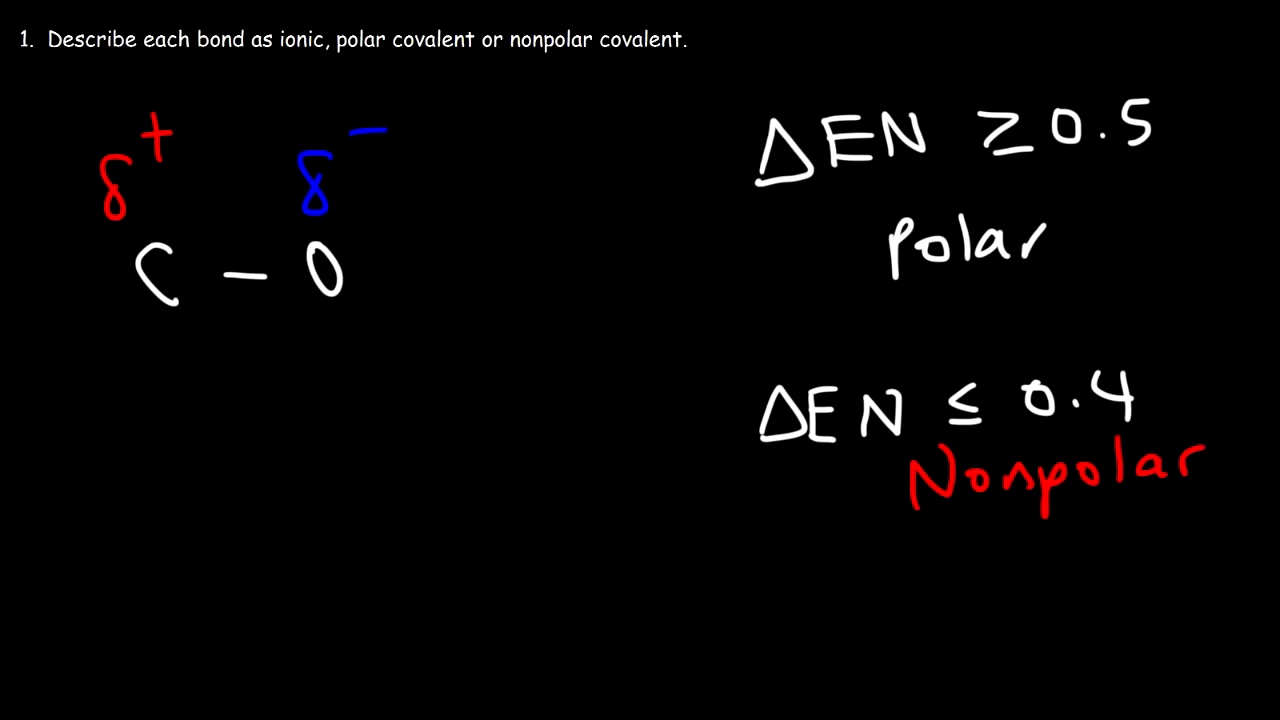 1. Describe each bond as ionic, polar covalent or nonpolar covalent.
δ+ δ−
C – O
ΔEN ≥ 0.5
polar
ΔEN ≤ 0.4
Nonpolar